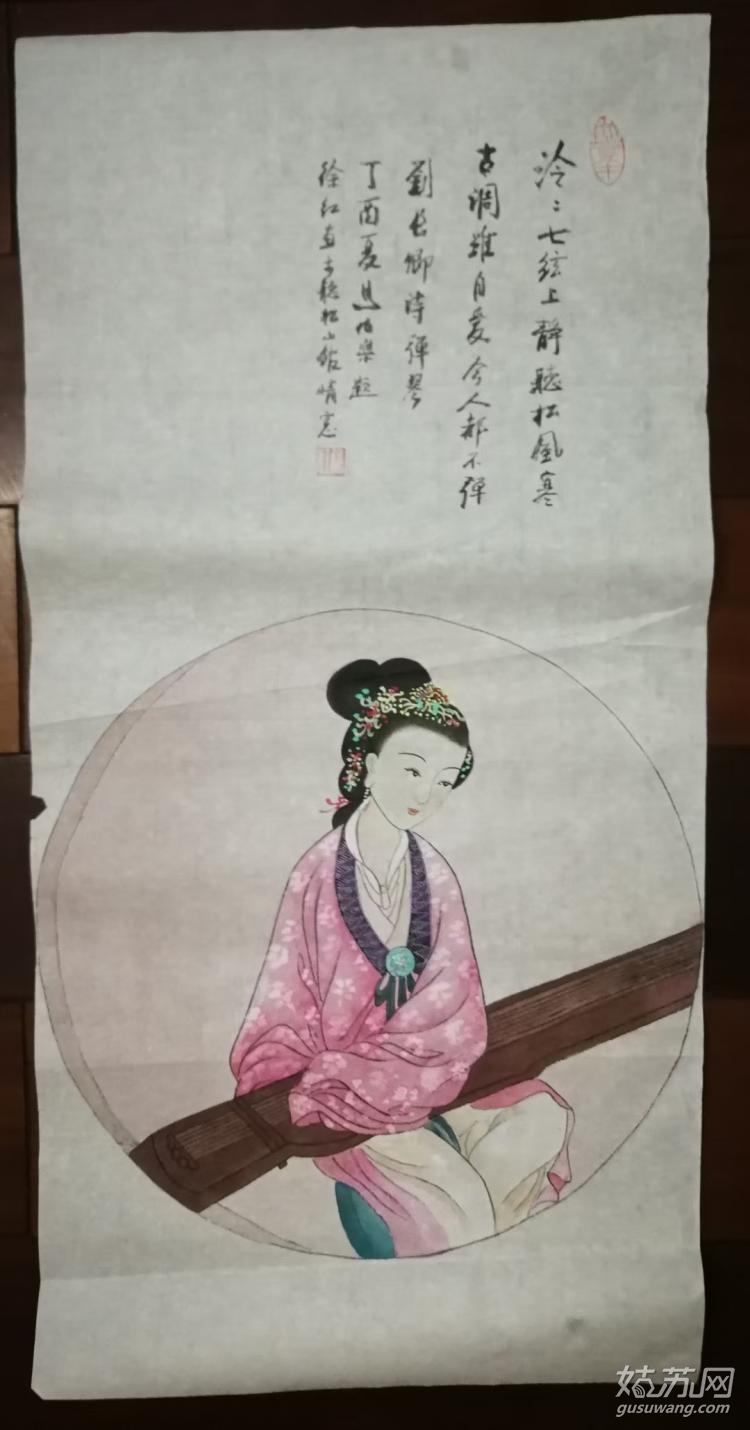 泠〻七絃上靜聽松風寒
古調雖自愛今人都不彈
劉長卿詩彈琴
丁酉夏馬伯樂題
徐紅畫于聽松山館晴窓
姑苏网
gusuwang.com